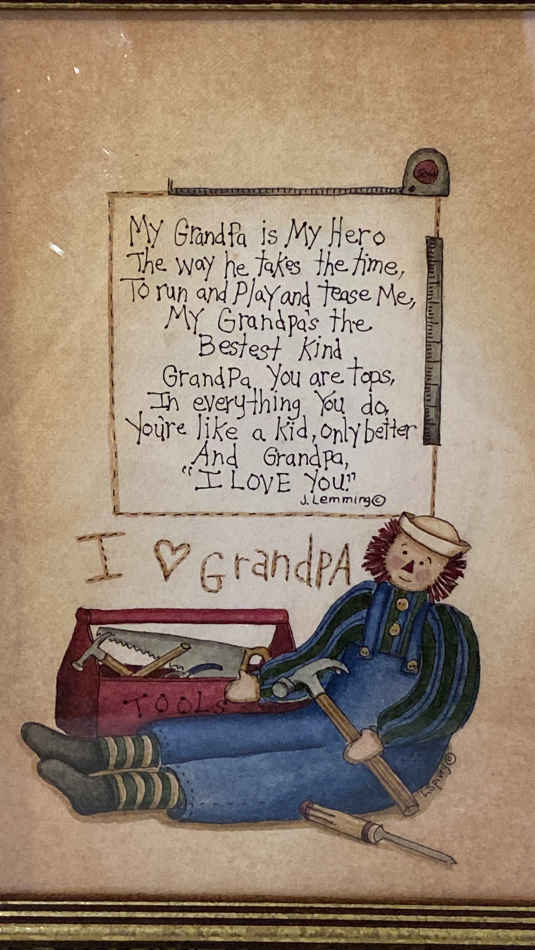 My Grandpa is My Hero
The way he takes the time,
To run and Play and tease Me,
My Grandpa's the
Bestest Kind
GrandPa You are tops,
In everything You do,
You're like a kid, only better
And Grandpa,
"I LOVE You."
J. Lemming©
I ♡ GrandpA
TOOLS